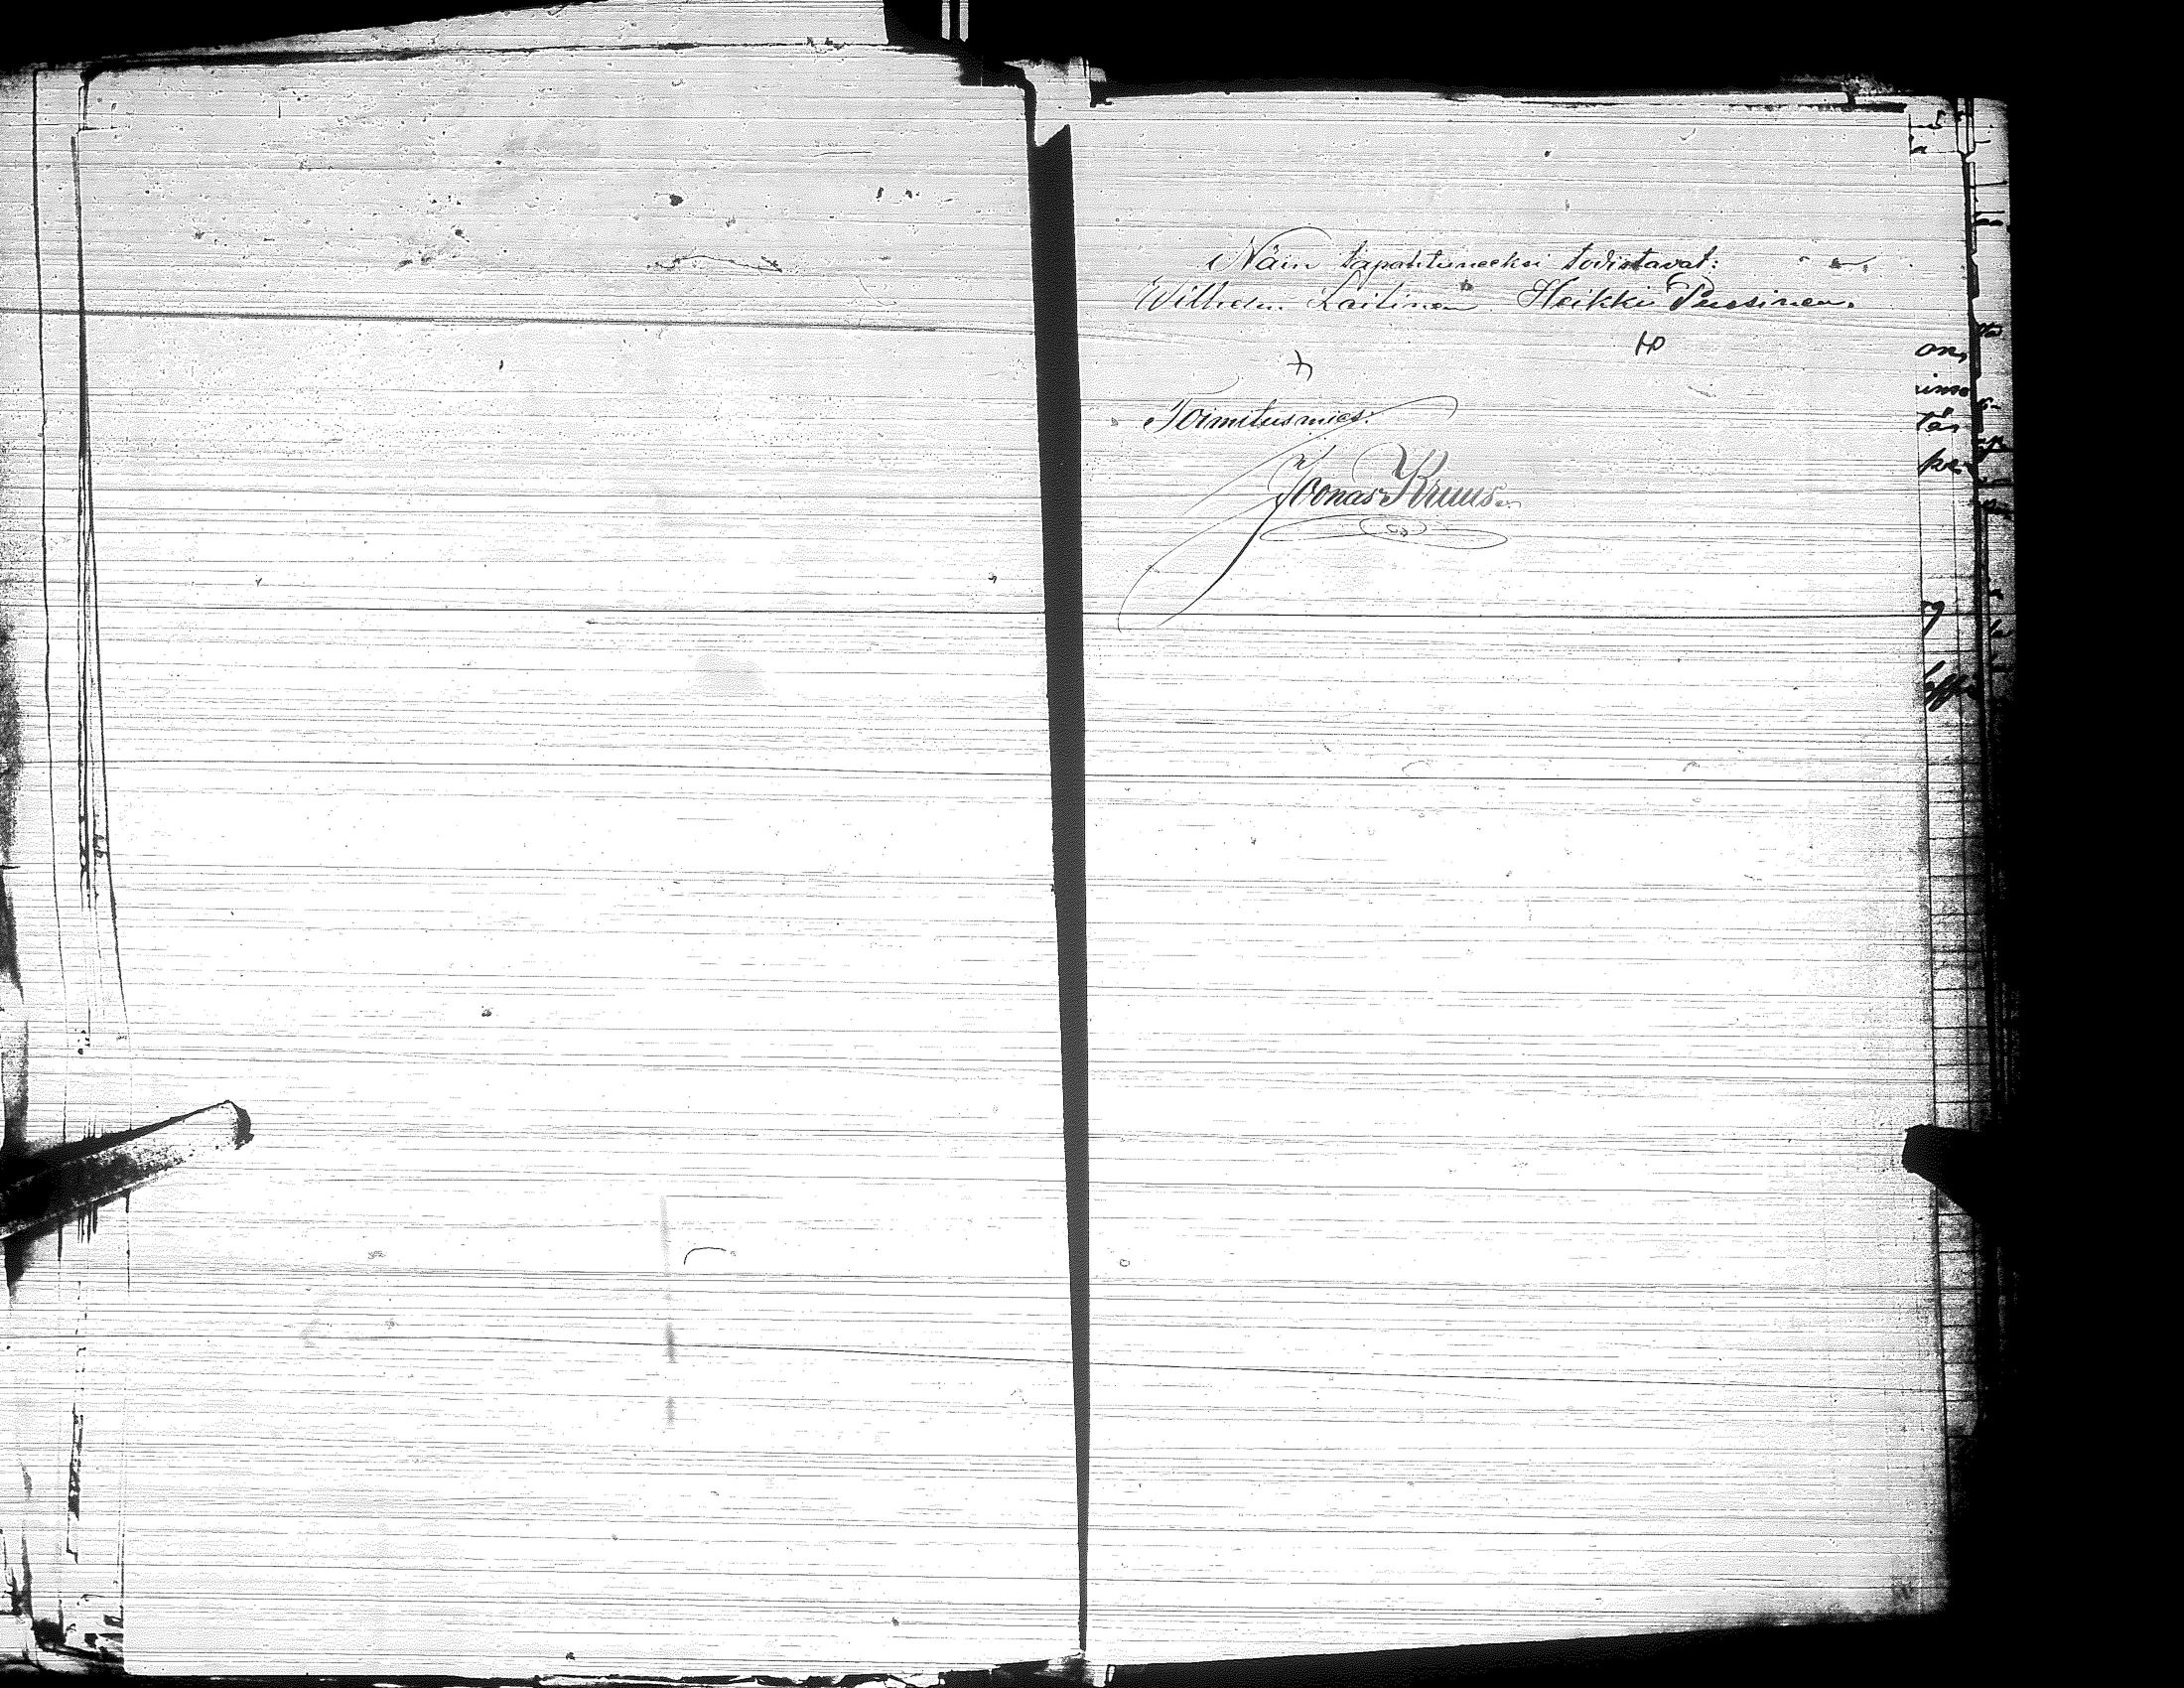 Näin tapahtuneeksi todistavat:
Wilhelm Laitinen Heikki Pussinen.
HP
Toimitusmies:
Joonas Kruus.
on,